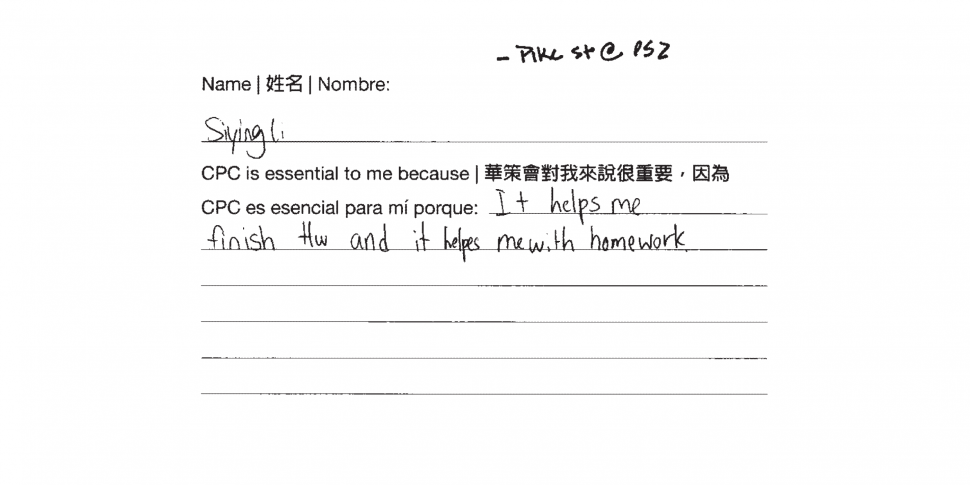 - Pike st @ PS2
Name | 姓名 | Nombre:
Siying Li
CPC is essential to me because | 華策會對我來說很重要，因為
CPC es esencial para mí porque: It helps me
finish Hw and it helpes me with homework